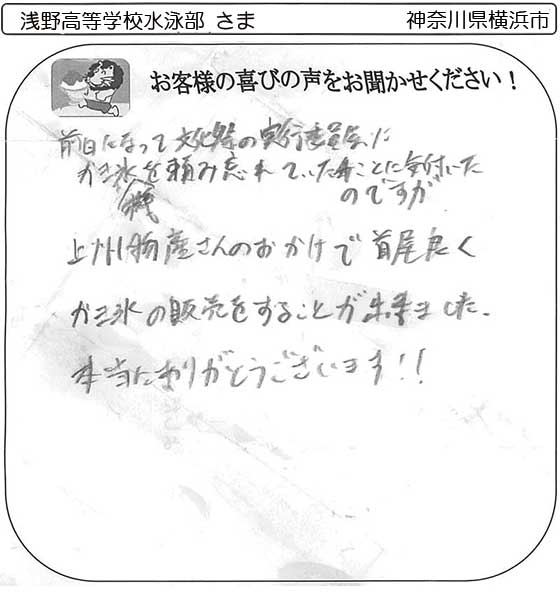 浅野高等学校水泳部 さま
神奈川県横浜市
お客様の喜びの声をお聞かせください！
前日になって文化祭の実行委員会に
カキ氷機を頼み忘れていたことに気付いた
のですが
上州物産さんのおかげで首尾良く
カキ氷の販売をすることが出来ました。
本当にありがとうございます!!